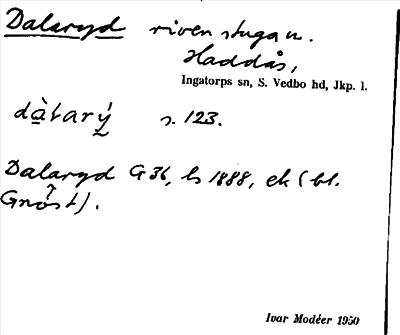 Dalaryd riven stuga u.
Haddås,
Ingatorps sn, S. Vedbo hd, Jkp. l.
dàlarý s. 123.
Dalaryd G 36, ls 1888, ek (bl.
Gnöst).
Ivar Modéer 1950